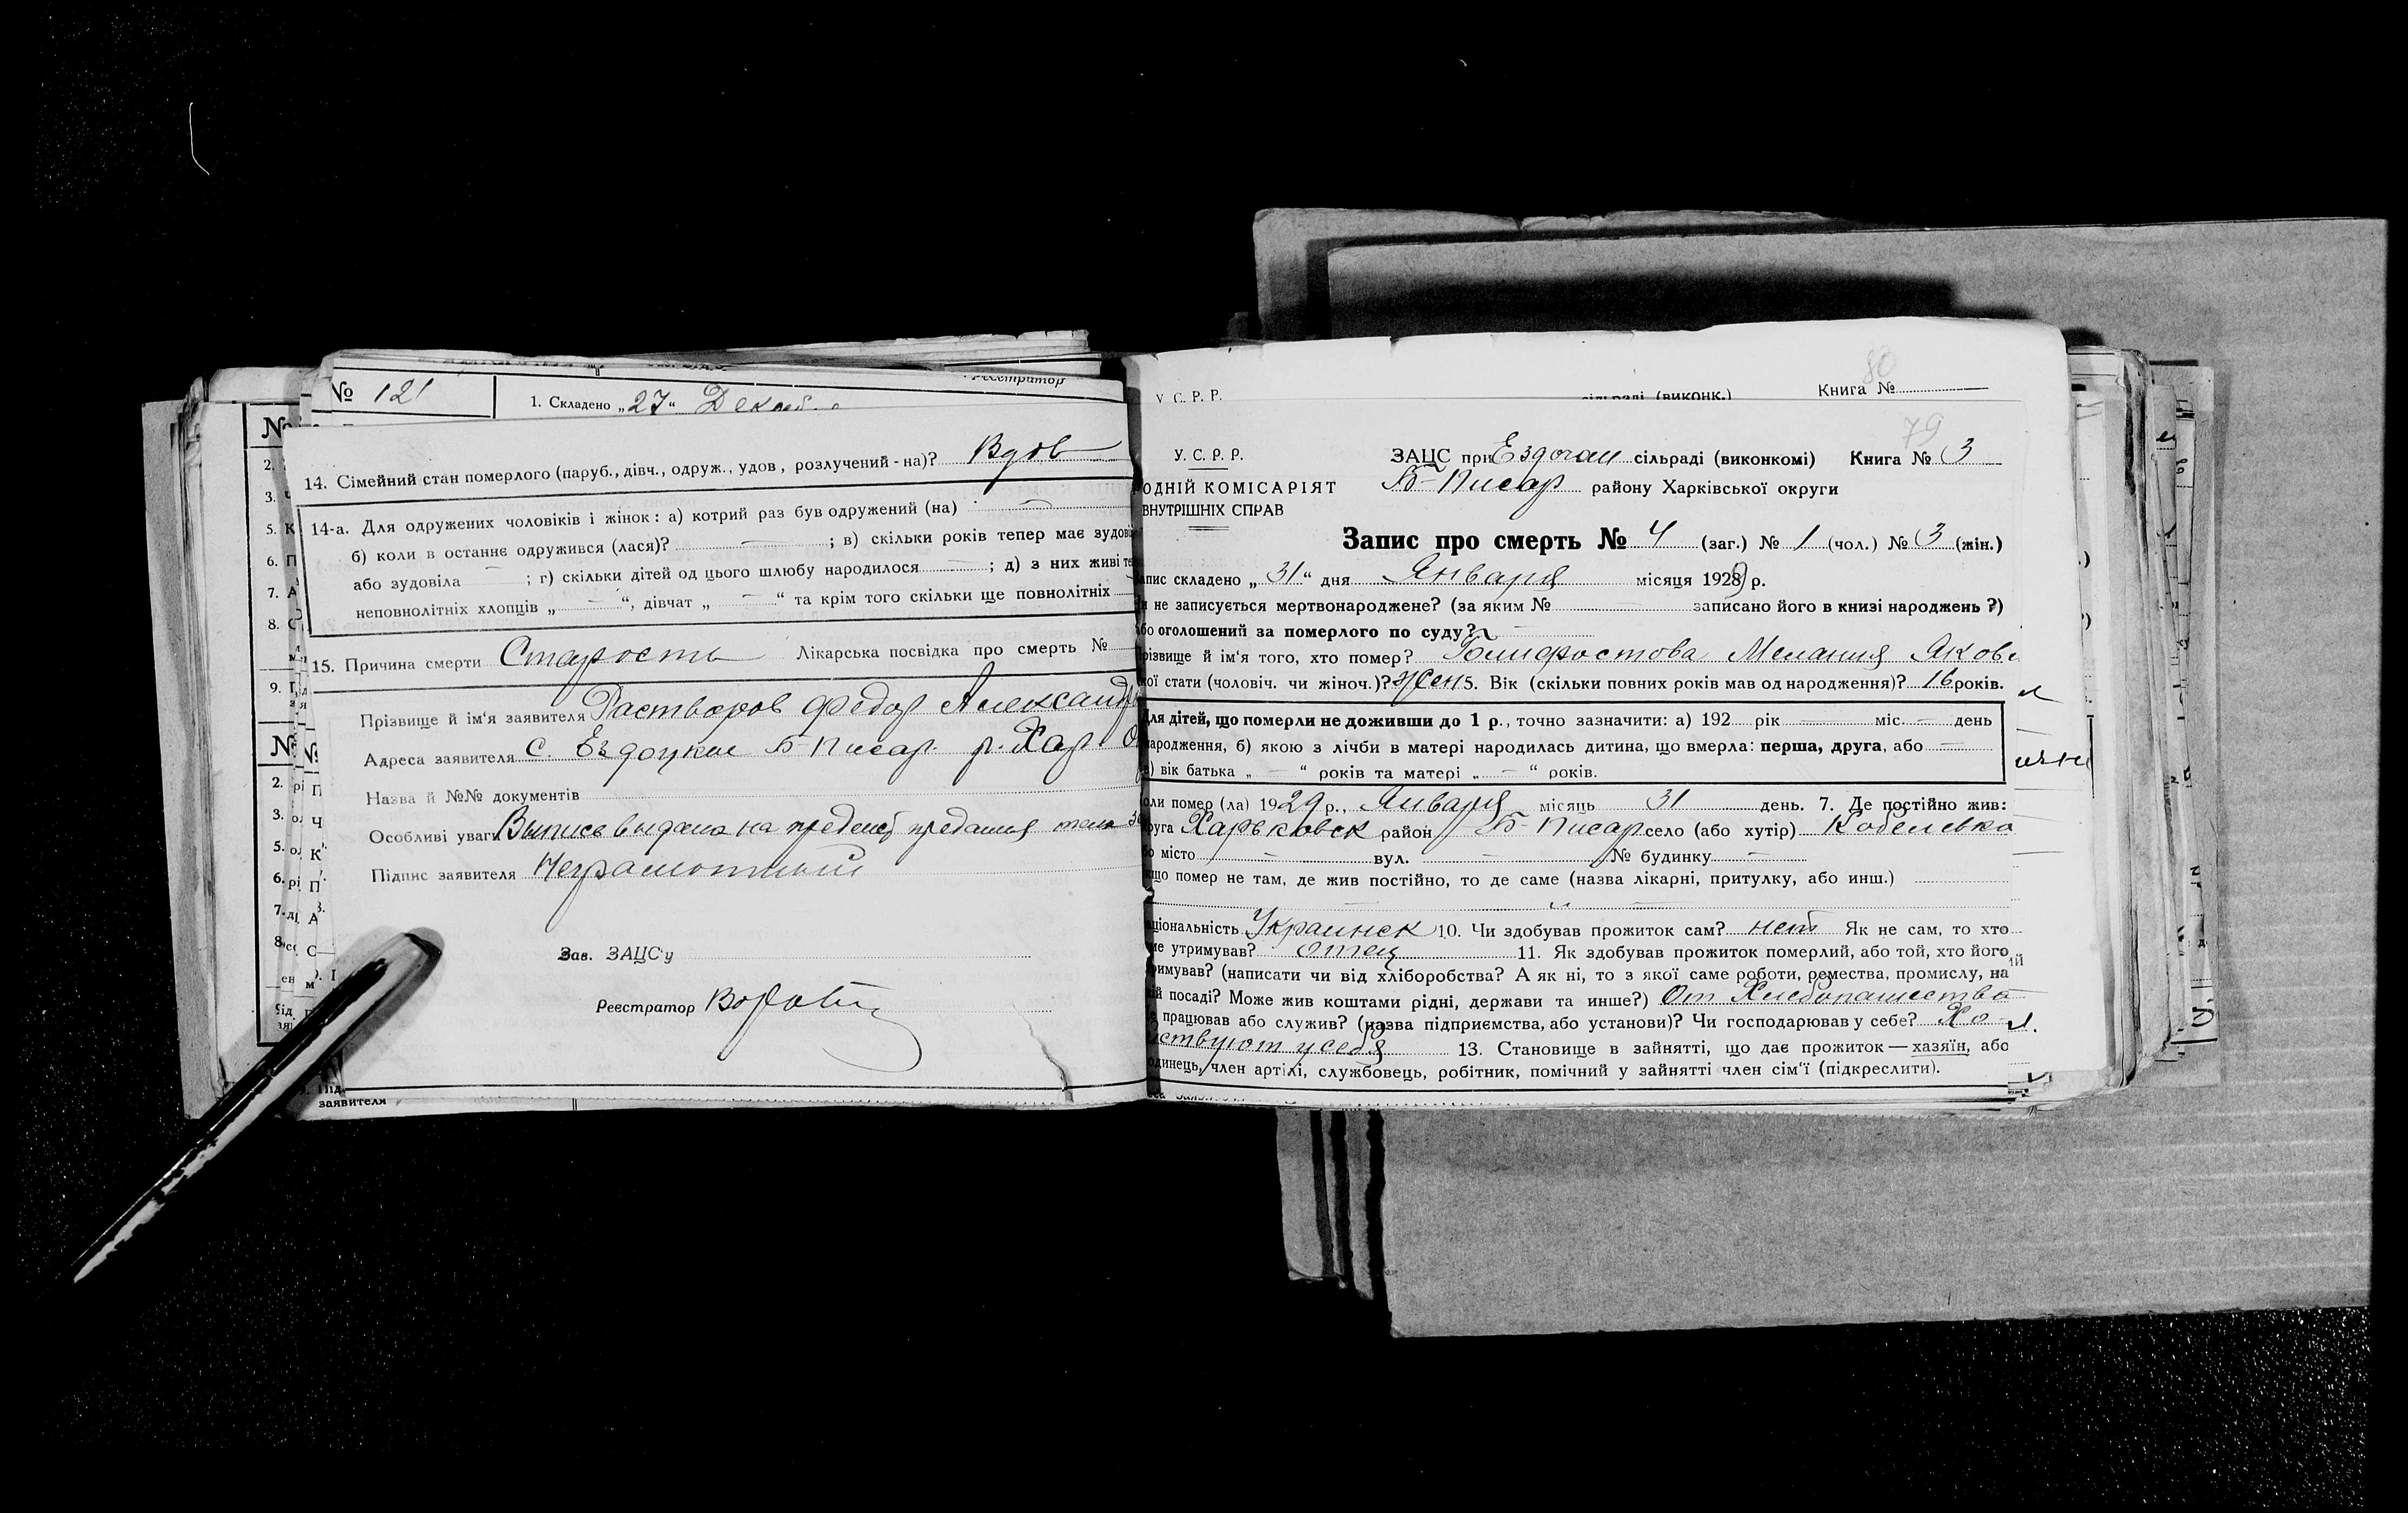 № 121
1. Складено „27“
Реєстратор
14. Сімейний стан померлого (паруб., дівч., одруж., удов, розлучений-на)? Вдов
14-а. Для одружених чоловіків і жінок: а) котрий раз був одружений (на) —
б) коли в останнє одружився (лася)? — ; в) скільки років тепер має
або зудовіла — ; г) скільки дітей од цього шлюбу народилося — ; д) з них живі
неповнолітніх хлопців „ — “, дівчат „ — “ та крім того скільки ще повнолітніх
15. Причина смерти Старость Лікарська посвідка про смерть №
Прізвище й ім'я заявителя Растворов Федор
Адреса заявителя с. Б-Писар. р. Хар
Назва й №№ документів
Особливі уваги Выпись выдана на предмет предания тела
Підпис заявителя Неграмотный
Зав. ЗАЦС'у
Реєстратор
заявителя
У. С. Р. Р.
(виконк.) Книга №
80
79
У. С. Р. Р. ЗАЦС при сільраді (виконкомі) Книга № 3
ОДНІЙ КОМІСАРІЯТ Б-Писар району Харківської округи
ВНУТРІШНІХ СПРАВ
Запис про смерть № 4 (заг.) № 1 (чол.) № 3 (жін.)
апис складено „31“ дня Января місяця 1929 р.
не записується мертвонароджене? (за яким № — записано його в книзі народжень?)
бо оголошений за померлого по суду? —
різвище й ім'я того, хто помер? Мелания Яков
кої стати (чоловіч. чи жіноч.)? Жен 5. Вік (скільки повних років мав од народження)? 16 років.
Для дітей, що померли не доживши до 1 р., точно зазначити: а) 192 рік — міс. — день
ародження, б) якою з лічби в матері народилась дитина, що вмерла: перша, друга, або —
) вік батька „ — “ років та матері „ — “ років.
оли помер (ла) 1929 р., Января місяць 31 день. 7. Де постійно жив:
руга Харьковск район Б-Писар село (або хутір) Кобелевка
о місто — вул. — № будинку —
що помер не там, де жив постійно, то де саме (назва лікарні, притулку, або инш.)
ціональність Украинск 10. Чи здобував прожиток сам? нет Як не сам, то хто
ме утримував? отец 11. Як здобував прожиток померлий, або той, хто його
римував? (написати чи від хліборобства? А як ні, то з якої саме роботи, ремества, промислу, на
ій посаді? Може жив коштами рідні, держави та инше?) От Хлебопашества
працював або служив? (назва підприємства, або установи)? Чи господарював у себе? Хо-
ствуют у себя 13. Становище в зайнятті, що дає прожиток — хазяїн, або
одинець, член артілі, службовець, робітник, помічний у зайнятті член сім'ї (підкреслити).